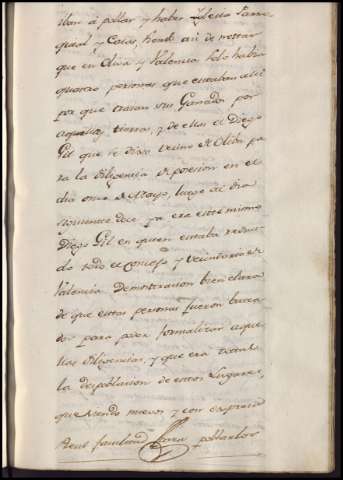 ban á poblar y haber Yglesia Parro
quial, y Casas, siendo asi de notar
que en Oliva y Valencia solo habia
quatro personas que estaban alli
por que traian sus Ganados por
aquellas tierras, y de ellas el Diego
Gil que se dixo vecino de Oliba pa
ra la diligencia de posesion en el
dia once de Mayo, luego al dia
siguiente doce ya era este mismo
Diego Gil en quien estaba reduci
do todo el concejo y vecindario de
Valencia Demostracion bien clara
de que estas personas fueron busca
das para poder formalizar aque
llas diligencias, y que era total
la despoblacion de estos Lugares,
que siendo nuevos y con expresa
Real facultad para poblarlos